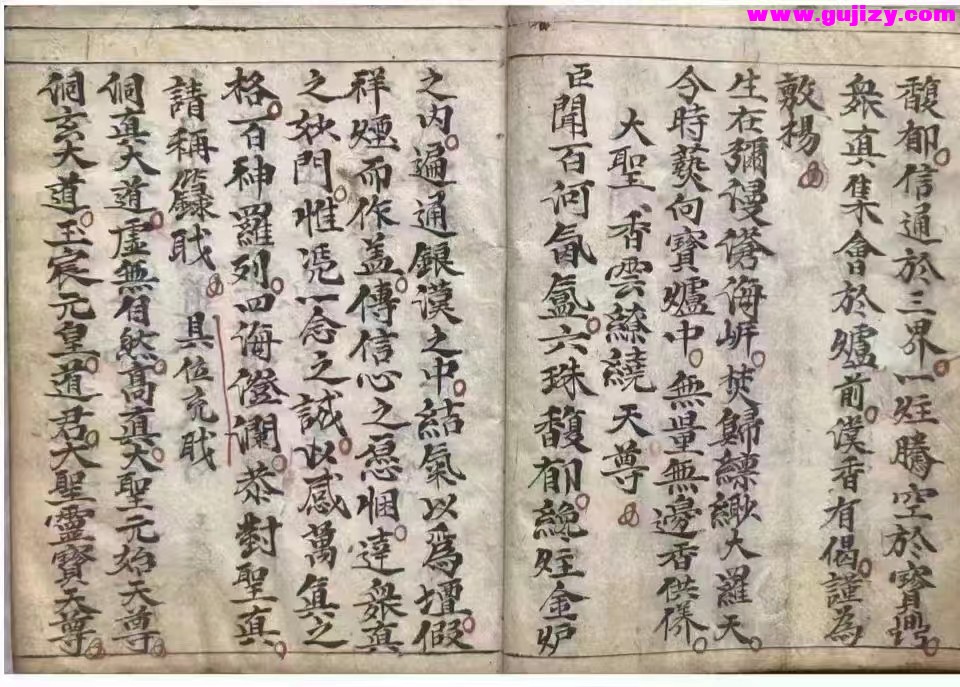 www.gujizy.com
馥郁信通於三界一炷騰空於寳鼎
衆真集會於爐前漢香有偈謹為
敷揚
生在彌漫滄海岍焚歸縹緲大羅天
今時爇向寳爐中無量無邊香供養
大聖香雲繚繞天尊
臣聞百河氤氳六珠馥郁纔炷金炉
之内遍通銀漢之中結氣以為壇假
祥煙而作盖傳信心之懇悃達衆真
之妙門惟凭一念之誠以感萬真之
格百神羅列四海澄瀾恭對聖真
請稱籙職 具位充职
洞真大道虚無自然高真大聖元始天尊
洞玄大道玉宸元皇道君大聖靈寳天尊